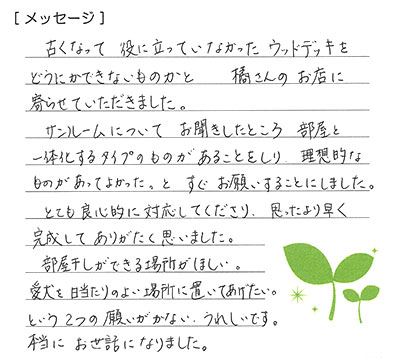 [ メッセージ ]
古くなって 役に立っていなかった ウッドデッキを
どうにかできないものかと 橘さんの お店に
寄らせていただきました。
サンルームについて お聞きしたところ 部屋と
一体化するタイプのものがあることをしり、理想的な
ものがあってよかった。と すぐ お願いすることにしました。
とても良心的に対応してくださり、思ったより早く
完成して ありがたく思いました。
部屋干しができる場所がほしい。
愛犬を日当たりのよい場所に置いてあげたい。
という 2つの 願いがかない、うれしいです。
本当に お世話になりました。